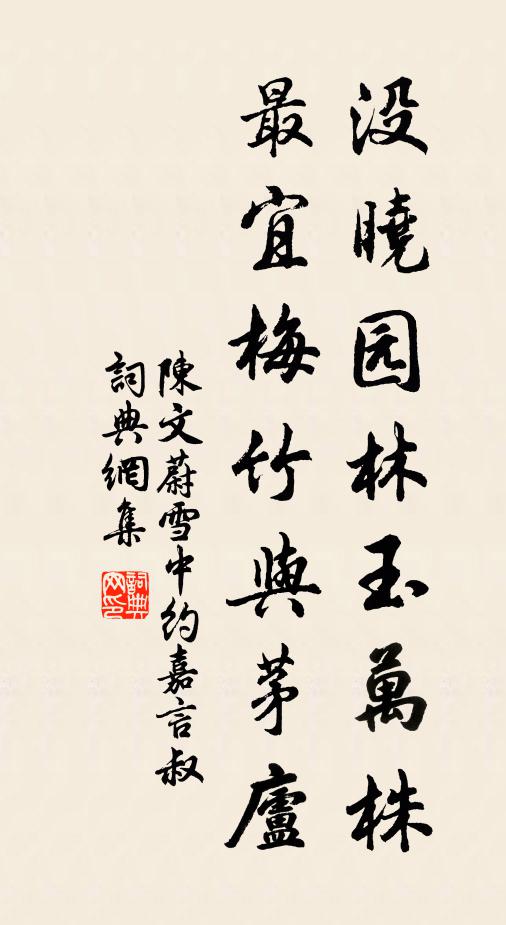 没曉园林玉萬株
最宜梅竹與茅廬
陳文蔚雪中約嘉言叔
詞典網集
詞典网印